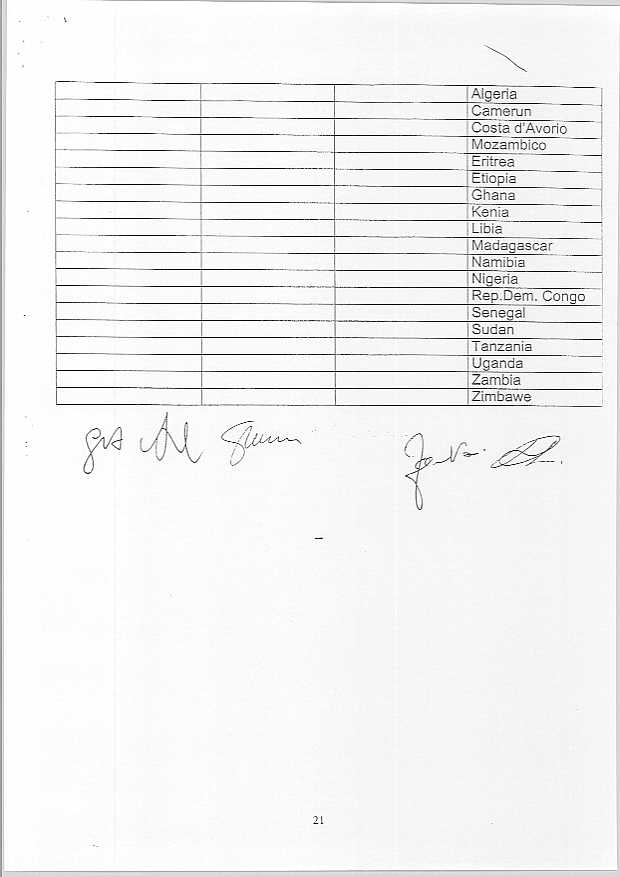 Algeria
Camerun
Costa d'Avorio
Mozambico
Eritrea
Etiopia
Ghana
Kenia
Libia
Madagascar
Namibia
Nigeria
Rep.Dem. Congo
Senegal
Sudan
Tanzania
Uganda
Zambia
Zimbawe
21